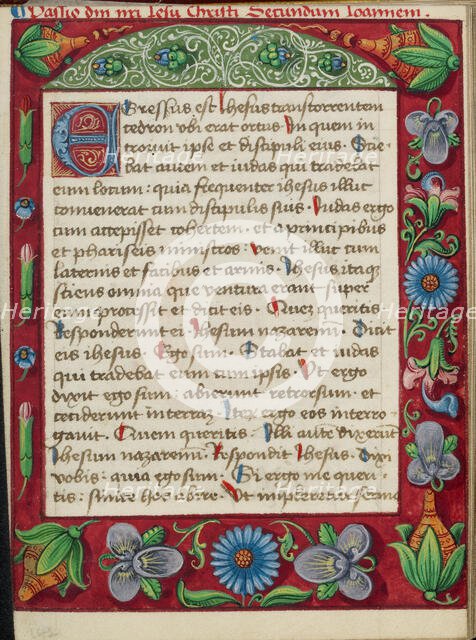 Passio dni nri Iesu Christi Secundum Ioannem.
Egressus est Ihesus trans torrentem
cedron ubi erat ortus. In quem in
troivit ipse et discipuli eius. Scie
bat autem et iudas qui tradebat
eum locum: quia frequenter ihesus illuc
convenerat cum discipulis suis. Iudas ergo
cum accepisset cohortem. et a principibus
et phariseis ministros: venit illuc cum
laternis et facibus et armis. Ihesus itaq
sciens omnia que ventura erant super
eum processit et dicit eis. Quez queritis
Responderunt ei Ihesum nazarenu. Dicit
eis ihesus. Ego sum. Stabat et iudas
qui tradebat eum cum ipsis. Ut ergo
dixit ego sum: abierunt retrorsum. et
ceciderunt in terraz. Iterz ergo eos interro
gavit. Quem queritis. Illi aute dixerut
Ihesum nazarenu. Respondit Ihesus. Dixi
vobis. quia ego sum. Si ergo me queri
tis: sinite hos abire. Ut impleretur sermo
Heritage
Heritage
Heritage
Heritage
Heritage
Heritage
Heritage